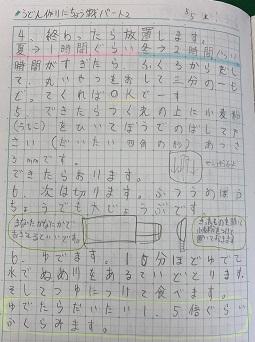 うどん作りにちょう戦パート2
4.終わったら放置します。
夏→1時間ぐらい冬→2時間ぐらい
時間がすぎたら、ふくろからだし
て、丸いやつをおして三分の一も
どってくればOKでーす
5.できたらつくえの上に小麦粉
(うちこ)をひいてぼうでのばしてくださ
い(だいたい四角の形)あつさ
3mmです。
できたらおります。
6.次は切ります。ふつうのほう
ちょうでも大じょうぶです
6.ゆでます。10分ほどゆでて
水でぬめりをあるていどとります。
そしてつゆにつけて食べます。
ゆでたらだいたい1.5倍ぐらい
ふくらみます。